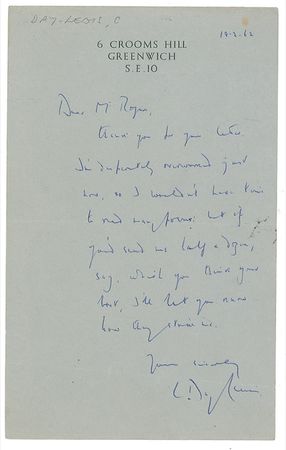 DAY-LEWIS, C
19.2.62
6 CROOMS HILL
GREENWICH
S.E.10
Dear Mr Rogers,
Thank you for your letter.
I'm desperately overworked just
now, so I wouldn't have time
to read many poems: but if
you'd send me half a dozen,
say, which you think your
best, I'll let you know
how they strike me.
Yours sincerely
C. Day Lewis